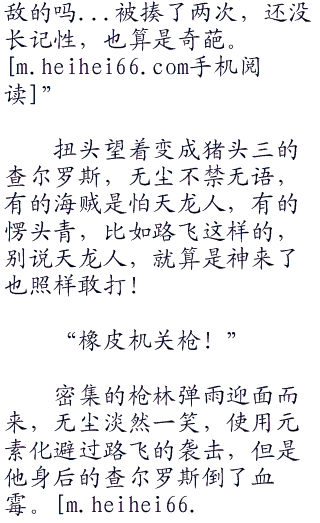 敌的吗...被揍了两次，还没
长记性，也算是奇葩。
[m.heihei66.com手机阅
读]”
扭头望着变成猪头三的
查尔罗斯，无尘不禁无语，
有的海贼是怕天龙人，有的
愣头青，比如路飞这样的，
别说天龙人，就算是神来了
也照样敢打！
“橡皮机关枪！”
密集的枪林弹雨迎面而
来，无尘淡然一笑，使用元
素化避过路飞的袭击，但是
他身后的查尔罗斯倒了血
霉。[m.heihei66.